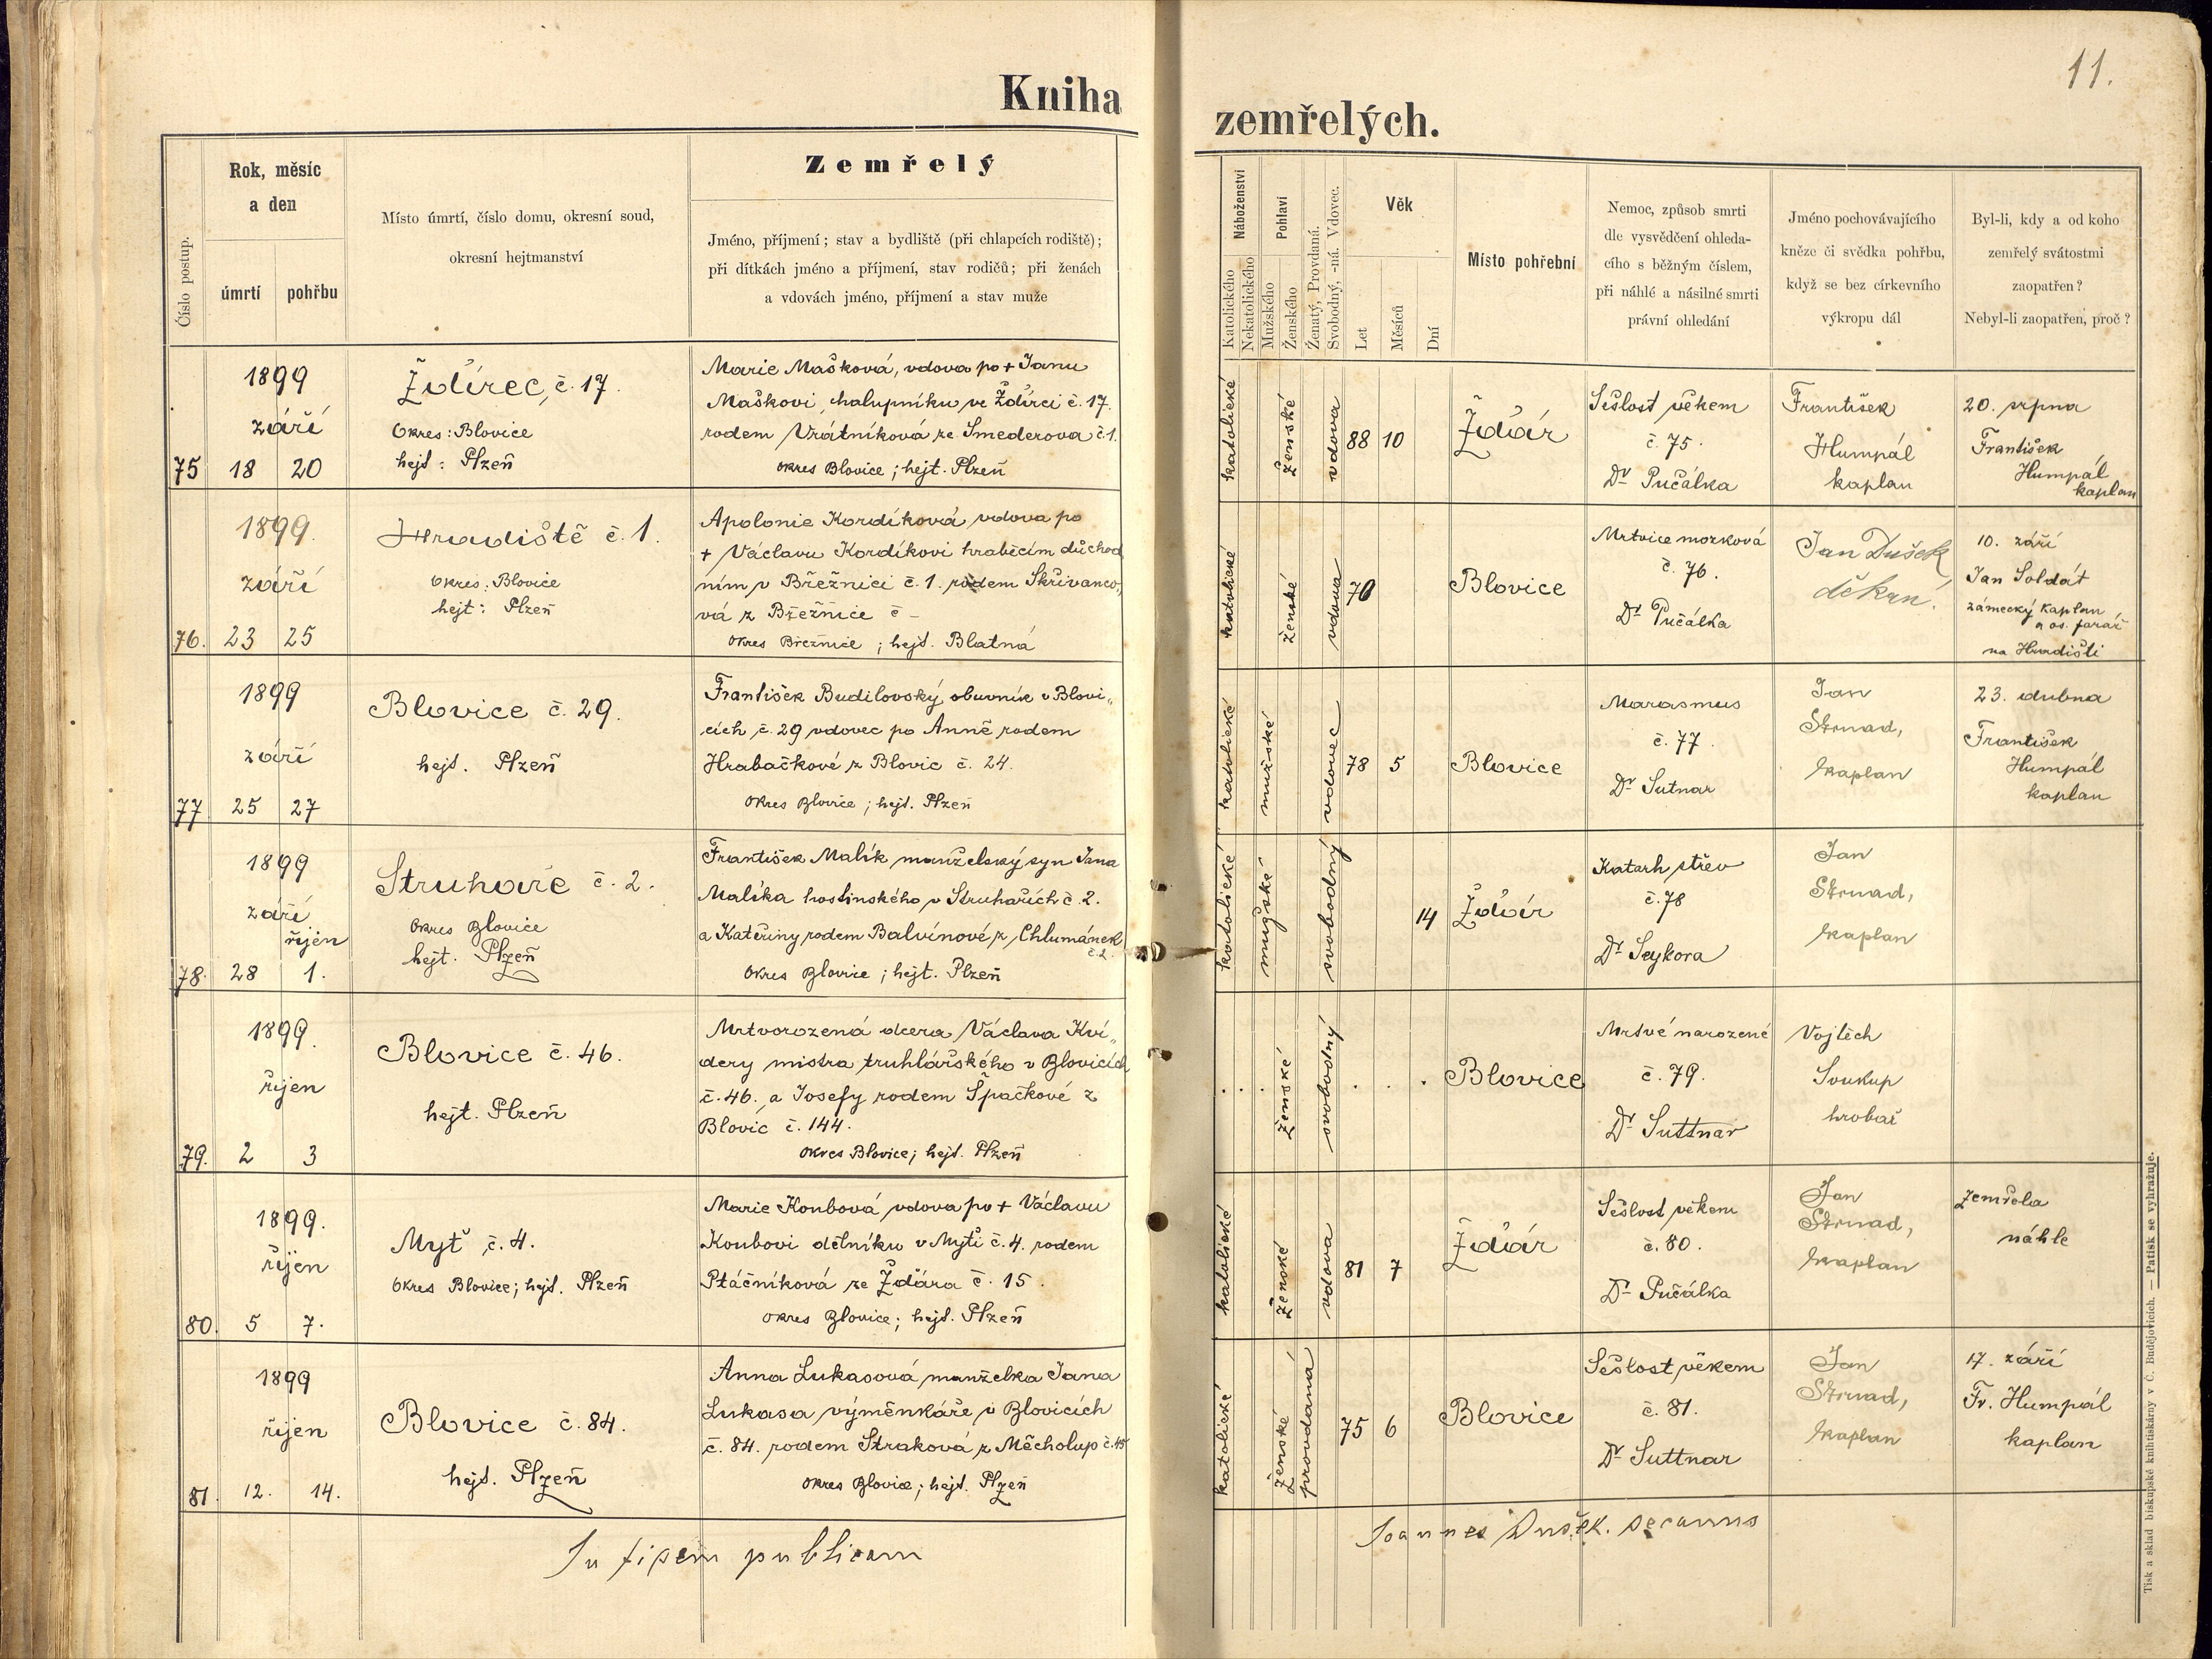 11.
Kniha zemřelých.
Číslo postup.
Rok, měsíc
a den
úmrtí pohřbu
Místo úmrtí, číslo domu, okresní soud,
okresní hejtmanství
Zemřelý
Jméno, příjmení; stav a bydliště (při chlapcích rodiště);
při dítkách jméno a příjmení, stav rodičů; při ženách
a vdovách jméno, příjmení a stav muže
Náboženství
Katolického
Nekatolického
Pohlaví
Mužského
Ženského
Ženatý, Provdaná.
Svobodný, -ná. Vdovec.
Věk
Let
Měsíců
Dní
Místo pohřební
Nemoc, způsob smrti
dle vysvědčení ohleda-
cího s běžným číslem,
při náhlé a násilné smrti
právní ohledání
Jméno pochovávajícího
kněze či svědka pohřbu,
když se bez církevního
výkropu dál
Byl-li, kdy a od koho
zemřelý svátostmi
zaopatřen?
Nebyl-li zaopatřen, proč?
1899
září
75 18 20
Ždírec, č. 17.
Okres: Blovice
hejt: Plzeň
Marie Mašková, vdova po + Janu
Maškovi, chalupníku ve Ždírci č. 17.
rodem Vrátníková ze Smederova č. 1.
okres Blovice; hejt. Plzeň
katolické
ženské
vdova
88 10
Žďár
Sešlost věkem
č. 75.
Dr Pučálka
František
Humpál
kaplan
20. srpna
František
Humpál
kaplan
1899.
září
76. 23 25
Hradiště č. 1.
Okres: Blovice
hejt: Plzeň
Apolonie Kordíková vdova po
+ Václavu Kordíkovi hraběcím důchod
ním v Březnici č. 1. rodem Skřivanco„
vá z Březnice č –
okres Březnice; hejt. Blatná
katolické
ženské
vdova
70
Blovice
Mrtvice mozková
č. 76.
Dr Pučálka
Jan Dušek
děkan.
10. září
Jan Soldát
zámecký kaplan
a os. farář
na Hradišti
1899
září
77 25 27
Blovice č. 29.
hejt. Plzeň
František Budilovský obuvník v Blovi„
cích č. 29 vdovec po Anně rodem
Hrabačkové z Blovic č. 24.
okres Blovice; hejt. Plzeň
katolické
mužské
vdovec
78 5
Blovice
Marasmus
č. 77.
Dr Sutnar
Jan
Strnad,
kaplan
23. dubna
František
Humpál
kaplan
1899
září
říjen
78. 28 1.
Struhaře č. 2.
Okres Blovice
hejt. Plzeň
František Malík manželský syn Jana
Malíka hostinského v Struhařích č. 2.
a Kateřiny rodem Balvínové z Chlumánek
č. 2.
Okres Blovice; hejt. Plzeň
katolické
mužské
svobodný
14
Žďár
Katarh střev
č. 78
Dr Seykora
Jan
Strnad,
kaplan
1899.
říjen
79. 2 3
Blovice č. 46.
hejt. Plzeň
Mrtvorozená dcera Václava Kví„
dery mistra truhlářského v Blovicích
č. 46. a Josefy rodem Špačkové z
Blovic č. 144.
okres Blovice; hejt. Plzeň
ženské
svobodný
Blovice
Mrtvé narozené
č. 79.
Dr Suttnar
Vojtěch
Soukup
hrobař
1899.
říjen
80. 5 7.
Myť č. 4.
Okres Blovice; hejt. Plzeň
Marie Koubová vdova po + Václavu
Koubovi dělníku v Myti č. 4. rodem
Ptáčníková ze Žďára č. 15.
okres Blovice; hejt. Plzeň
katolické
ženské
vdova
81 7
Žďár
Sešlost věkem
č. 80.
Dr Pučálka
Jan
Strnad,
kaplan
Zemřela
náhle
1899
říjen
81. 12. 14.
Blovice č. 84.
hejt. Plzeň
Anna Lukasová manželka Jana
Lukasa výměnkáře v Blovicích
č. 84. rodem Straková z Měcholup č. 45
okres Blovice; hejt. Plzeň
katolické
ženské
provdaná
75 6
Blovice
Sešlost věkem
č. 81.
Dr Suttnar
Jan
Strnad,
kaplan
17. září
Fr. Humpál
kaplan
In fidem publicam
Joannes Dušek. decanus
Tisk a sklad biskupské knihtiskárny v Č. Budějovicích. — Patisk se vyhražuje.